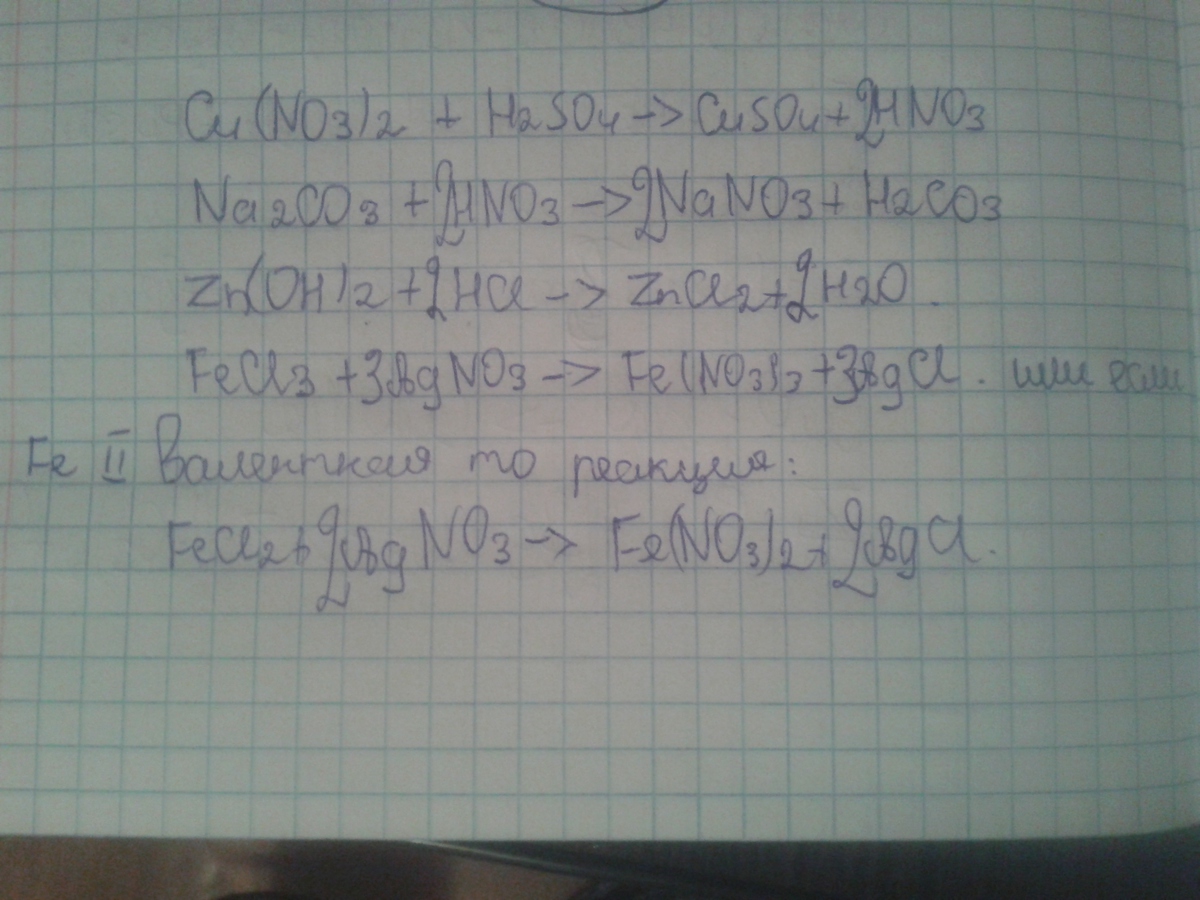 Cu(NO3)2 + H2SO4 -> CuSO4 + 2HNO3
Na2CO3 + 2HNO3 -> 2NaNO3 + H2CO3
Zn(OH)2 + 2HCl -> ZnCl2 + 2H2O.
FeCl3 + 3AgNO3 -> Fe(NO3)3 + 3AgCl. или если
Fe II Валентная то реакция:
FeCl2 + 2AgNO3 -> Fe(NO3)2 + 2AgCl.